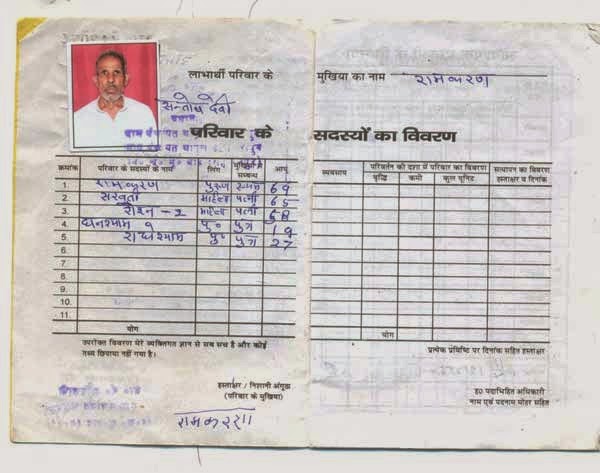 लाभार्थी परिवार के मुखिया का नाम रामकरण
सन्तोष देवी
परिवार के सदस्यों का विवरण
क्रमांक परिवार के सदस्यों के नाम लिंग मुखिया से सम्बन्ध आयु व्यवसाय परिवर्तन की दशा में परिवार का विवरण सत्यापन का विवरण
वृद्धि कमी कुल यूनिट हस्ताक्षर व दिनांक
1. रामकरण पुरुष स्वयं 69
2. महिला पत्नी 65
3. महिला पत्नी 68
4. घनश्याम पु० पुत्र 19
5. राधेश्याम पु० पुत्र 27
6.
7.
8.
9.
10.
11.
योग योग
उपरोक्त विवरण मेरे व्यक्तिगत ज्ञान से सब सच है और कोई
तथ्य छिपाया नहीं गया है।
प्रत्येक प्रविष्टि पर दिनांक सहित हस्ताक्षर
हस्ताक्षर / निशानी अंगूठा
(परिवार के मुखिया)
ह० पदाभिहित अधिकारी
नाम एवं पदनाम मोहर सहित
रामकरण